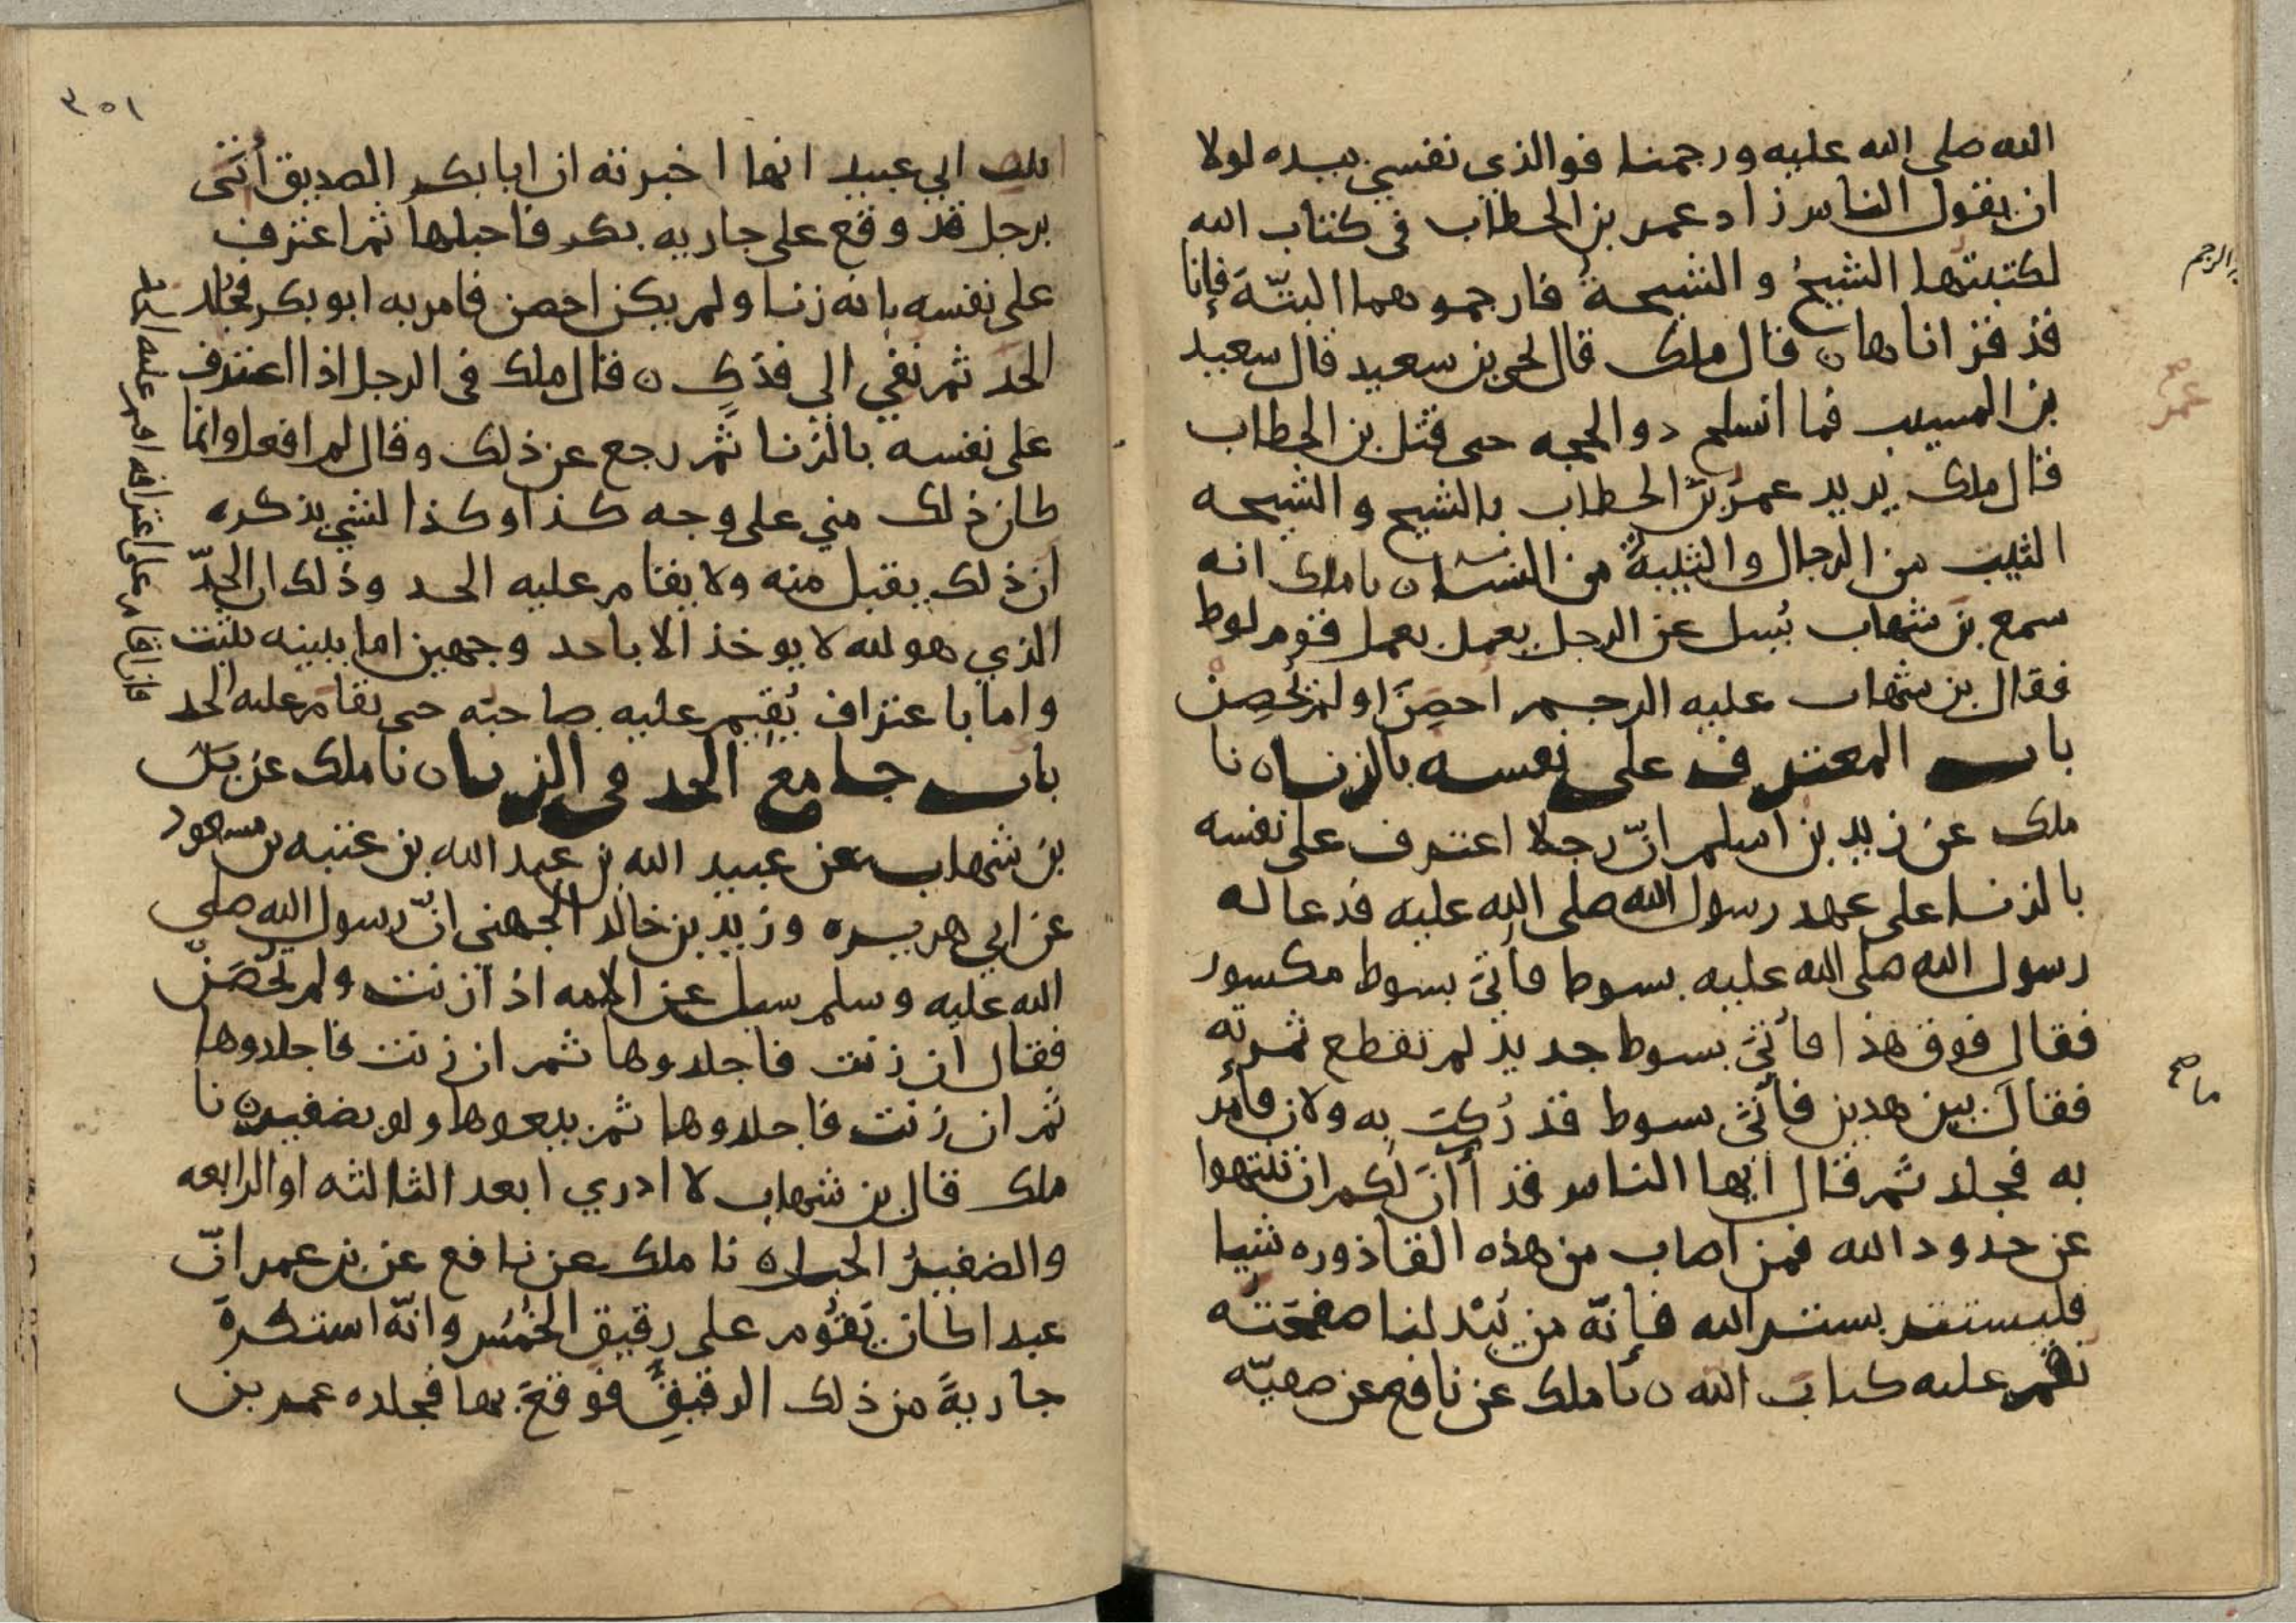 الله صلى الله عليه ورجمنا فوالذى نفسي بيده لولا
ان يقول الناس زاد عمر بن الخطاب فى كتاب الله
لكتبتها الشيخ والشيخة فارجموهما البتة فإنا
قد قرأناها ن قال ملك قال يحيى بن سعيد قال سعيد
بن المسيب فما انسلخ ذو الحجه حتى قتل بن الخطاب
قال ملك يريد عمر بن الخطاب بالشيخ والشيخه
الثيب من الرجال والثيبة من النسا ن نا ملك انه
سمع بن شهاب يُسل عن الرجل يعمل بعمل قوم لوط
فقال بن شهاب عليه الرجم احصن او لم يحصن
باب المعترف على نفسه بالزنا ن نا
ملك عن زيد بن اسلم انّ رجلا اعترف على نفسه
بالزنا على عهد رسول الله صلى الله عليه فدعا له
رسول الله صلى الله عليه بسوط فأتى بسوط مكسور
فقال فوق هذا فأتى بسوط جديد لم تقطع ثمرته
فقال بين هذين فأتى بسوط قد رُكِبَ به ولان فأمر
به فجلد ثم قال ايها الناس قد أَانَ لكم ان تنتهوا
عن حدود الله فمن اصاب من هذه القاذوره شيا
فليستتر بستر الله فإنّه من يُبْد لنا صفحَتَه
نقم عليه كتاب الله ن نا ملك عن نافع عن صفيّه
الرجم
عمر
صح
ما صح
٣٥١
ابنت ابي عبيد انها اخبرته ان ابا بكر الصديق أُتى
برجل قد وقع على جاريه بكر فاحبلها ثم اعترف
على نفسه بانه زنا ولم يكن احصن فامر به ابو بكر فجُلد
الحَد ثم نفي الى فدَكٍ ن قال ملك فى الرجل اذا اعترف
على نفسه بالزنا ثُمّ رجع عن ذلك وقال لم افعل وانما
كان ذلك مني على وجه كذا وكذا لشي يذكره
ان ذلك يقبل منه ولا يقام عليه الحد وذلك ان الحدّ
الذي هو لله لا يوخذ الا باحد وجهين اما ببينه تثبت
واما باعتراف يُقيم عليه صاحبه حتى يقام عليه الحد
باب جامع الحد فى الزنا ن نا ملك عن
بن شهاب عن عبيد الله بن عبد الله بن عتبه بن مسعود
عن ابي هريره وزيد بن خالد الجهني انّ رسول الله صلى
الله عليه وسلم سيل عن الامه اذا زنت ولم تُحْصَنْ
فقال ان زنت فاجلدوها ثم ان زنت فاجلدوها
ثم ان زنت فاجلدوها ثم بيعوها ولو بضفير ن نا
ملك قال بن شهاب لا ادري ابعد الثالثه او الرابعه
والضفيرُ الحبل ن نا ملك عن نافع عن بن عمر انّ
عبدا كان يَقُوم على رقيق الخُمُس وانّه استكره
جاريةً من ذلك الرقيقِ فوقع بها فجلده عمر بن
فان اقام على اعترافه اقيم عليه الحد